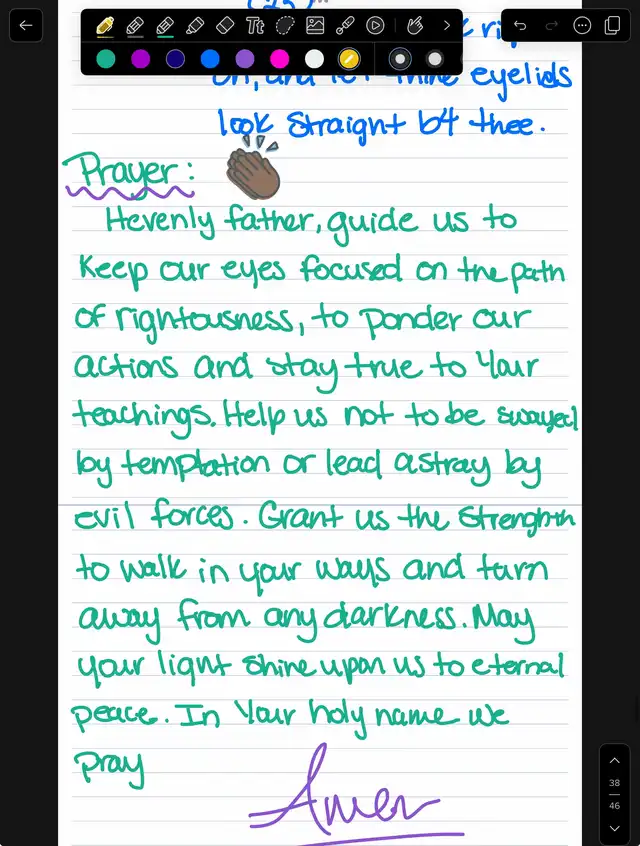 Tt
eyelids
look straight b4 thee.
Prayer:
Hevenly father, guide us to
keep our eyes focused on the path
of rightousness, to ponder our
actions and stay true to your
teachings. Help us not to be swayed
by temptation or lead astray by
evil forces. Grant us the strenghth
to walk in your ways and turn
away from any darkness. May
your light shine upon us to eternal
peace. In Your holy name we
pray
Amen
38
46